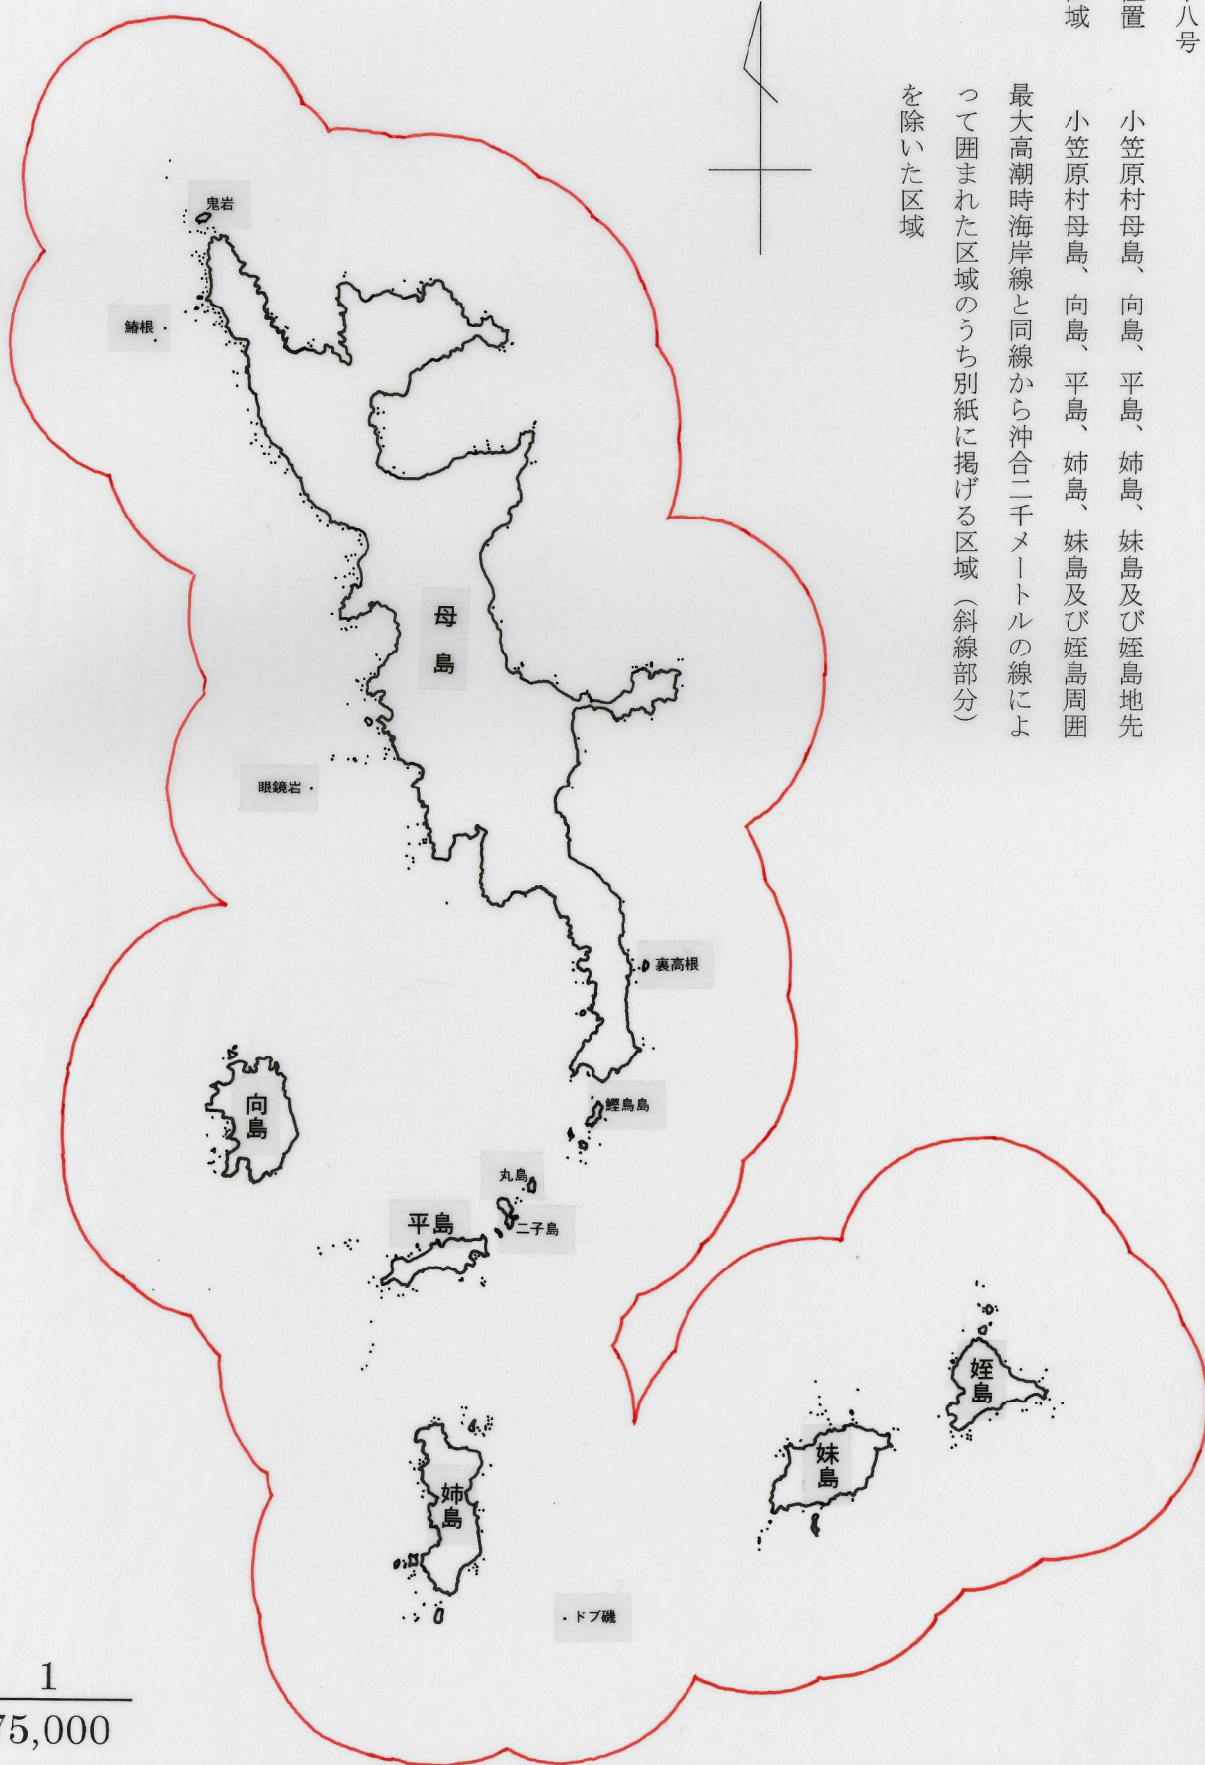 八号
置
小笠原村母島、向島、平島、姉島、妹島及び姪島地先
域
小笠原村母島、向島、平島、姉島、妹島及び姪島周囲
最大高潮時海岸線と同線から沖合二千メートルの線によ
って囲まれた区域のうち別紙に掲げる区域（斜線部分）
を除いた区域
鬼岩
鰆根
母島
眼鏡岩
裏高根
向島
鰹鳥島
丸島
平島
二子島
姪島
妹島
姉島
ドブ磯
1
75,000